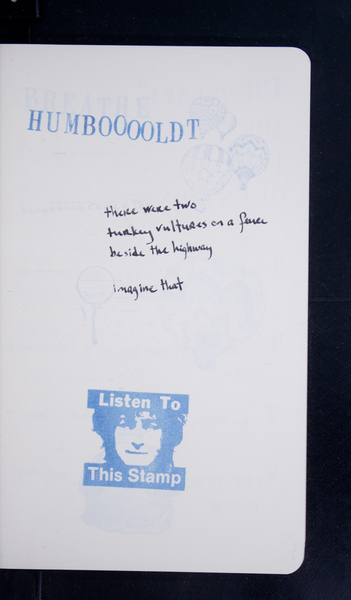 BREATHE
HUMBOOOOLDT
there were two
turkey vultures on a fence
beside the highway
imagine that
Listen To
This Stamp